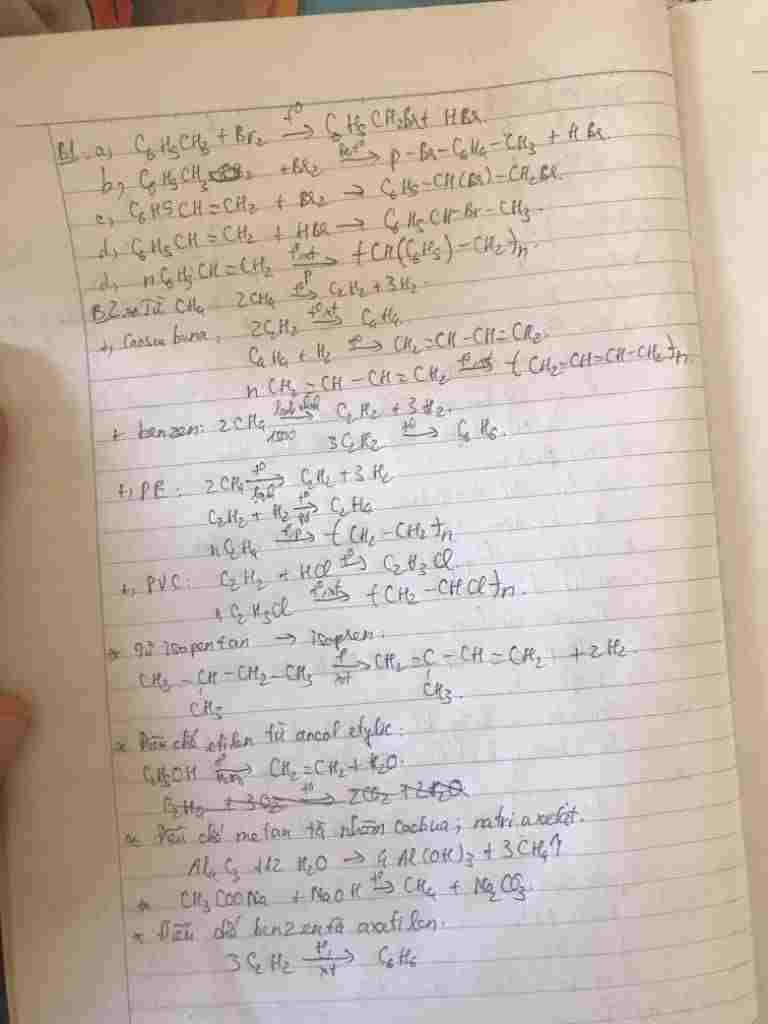 B1. a, C6H5CH3 + Br2 →(t°) C6H5CH2Br + HBr
b, C6H5CH3 + Br2 →(Fe, t°) p-Br-C6H4-CH3 + HBr
c, C6H5CH=CH2 + Br2 → C6H5-CH(Br)-CH2Br.
d, C6H5CH=CH2 + HBr → C6H5CH-Br-CH3.
d, nC6H5CH=CH2 →(t°, xt, p) (CH(C6H5)-CH2)n.
B2. Từ CH4 2CH4 →(t°) C2H2 + 3H2.
+, Caosu buna, 2C2H2 →(t°, xt) C4H4.
C4H4 + H2 →(t°) CH2=CH-CH=CH2.
nCH2=CH-CH=CH2 →(t°, xt) (CH2=CH=CH-CH2)n.
+ benzen: 2CH4 →(1500) C2H2 + 3H2.
3C2H2 →(t°) C6H6.
+, PE: 2CH4 →(t°) C2H2 + 3H2
C2H2 + H2 →(t°, Pd) C2H4
nC2H4 →(t°, p) (CH2-CH2)n
+, PVC: C2H2 + HCl →(t°) C2H3Cl.
nC2H3Cl →(t°, xt) (CH2-CHCl)n.
* Từ isopentan → isopren.
CH3-CH-CH2-CH3 →(t°, xt) CH2=C-CH=CH2 + 2H2.
CH3 CH3.
* Điều chế etilen từ ancol etylic.
C2H5OH → CH2=CH2 + H2O.
C2H4 + 3O2 →(t°) 2CO2 + 2H2O
* Điều chế metan từ nhôm cacbua; natri axetat.
Al4C3 + 12 H2O → 4 Al(OH)3 + 3CH4↑
* CH3COONa + NaOH →(t°) CH4 + Na2CO3.
* Điều chế benzen từ axetilen.
3C2H2 →(t°, xt) C6H6